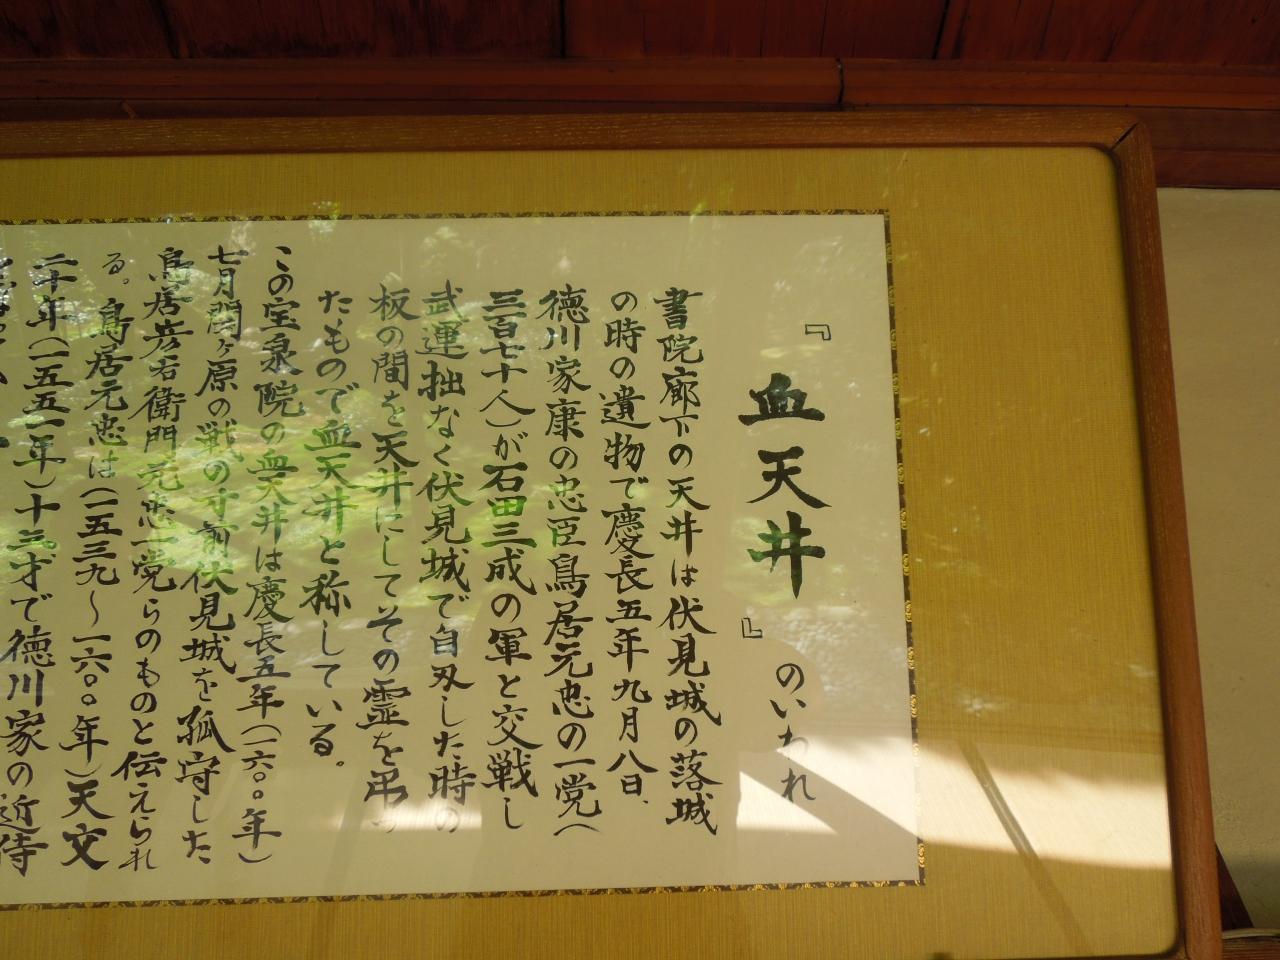 『血天井』のいわれ
書院廊下の天井は伏見城の落城
の時の遺物で慶長五年九月八日、
徳川家康の忠臣鳥居元忠の一党(
三百七十人)が石田三成の軍と交戦し
武運拙なく伏見城で自刃した時の
板の間を天井にしてその霊を弔っ
たもので血天井と称している。
この宝泉院の血天井は慶長五年(一六〇〇年)
七月関ヶ原の戦の寸前伏見城を孤守した
鳥居彦右衛門元忠一党らのものと伝えられ
る。鳥居元忠は(一五三九〜一六〇〇年)天文
二十年(一五五一年)十三才で徳川家の近侍